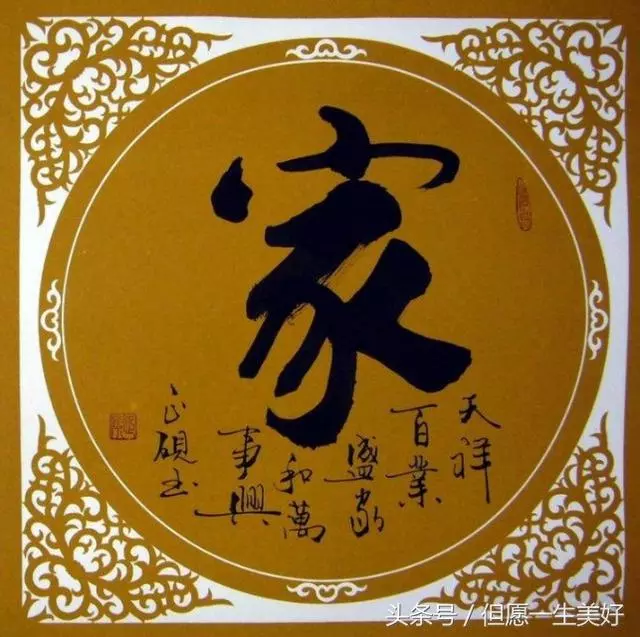 家
天祥
百業
盛家
和萬
事興
书
头条号 / 但愿一生美好